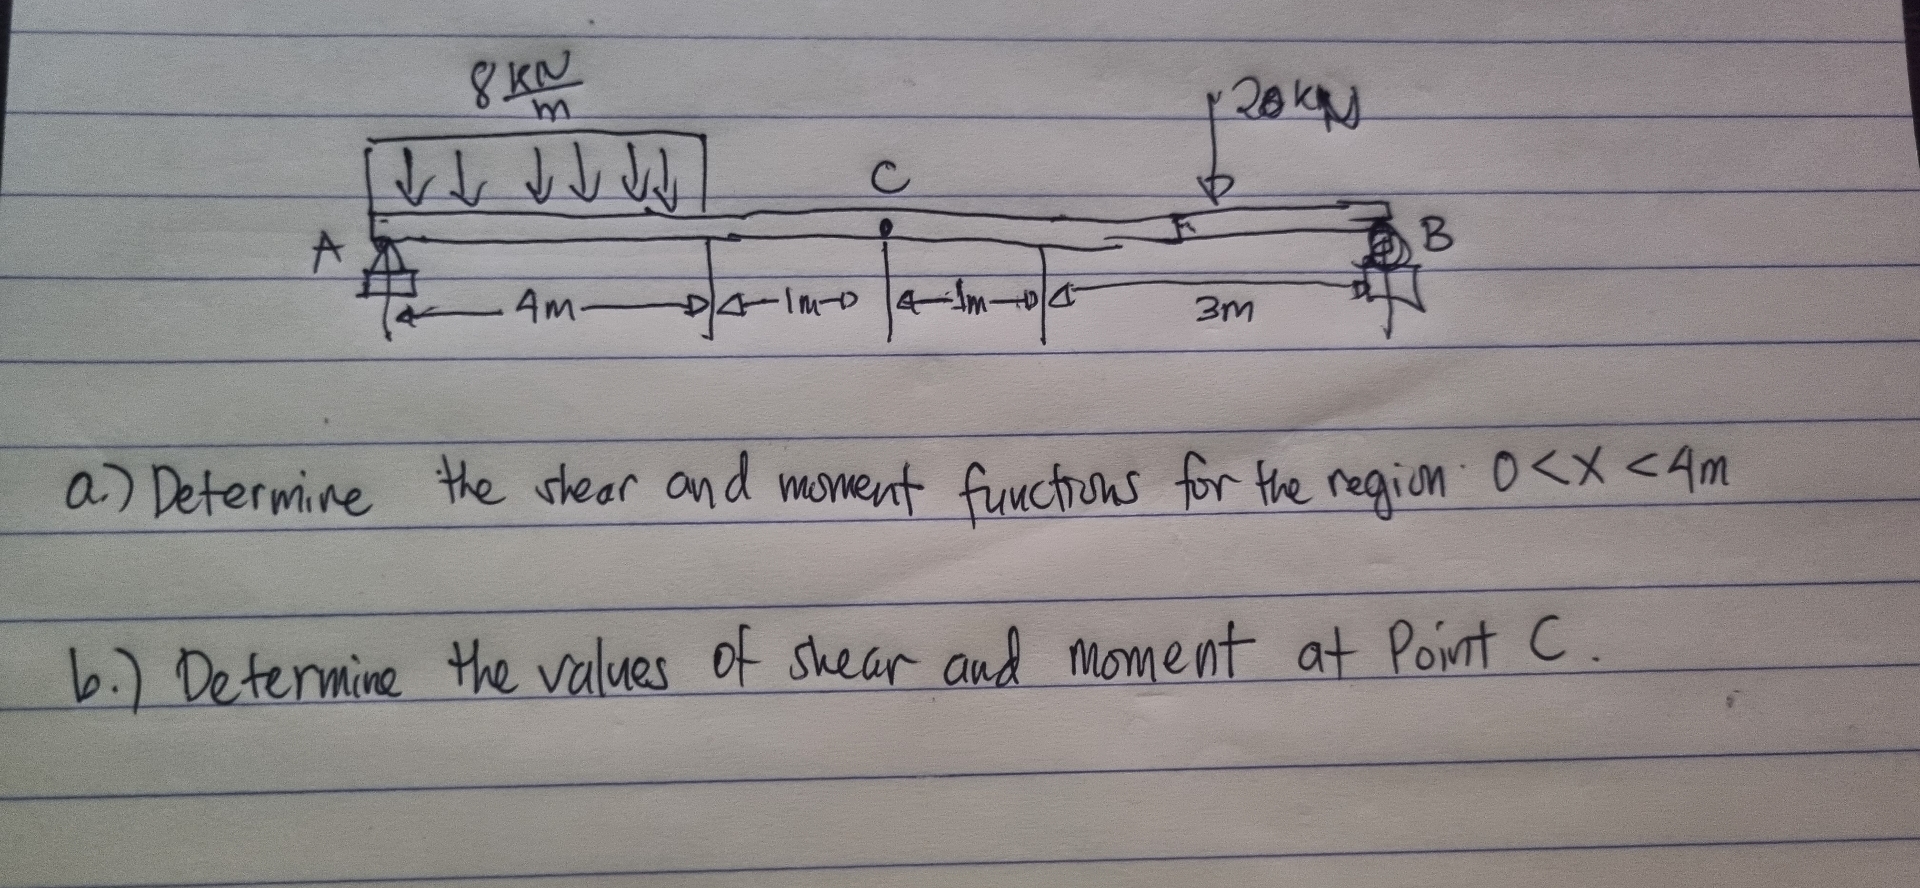 8 kN/m
20 kN
C
A
B
4m
1m
1m
3m
a.) Determine the shear and moment functions for the region 0 < x < 4m
b.) Determine the values of shear and moment at Point C.